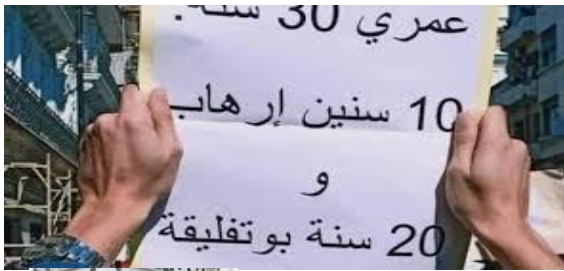 عمري 30 سنة.
10 سنين إرهاب
و
20 سنة بوتفليقة